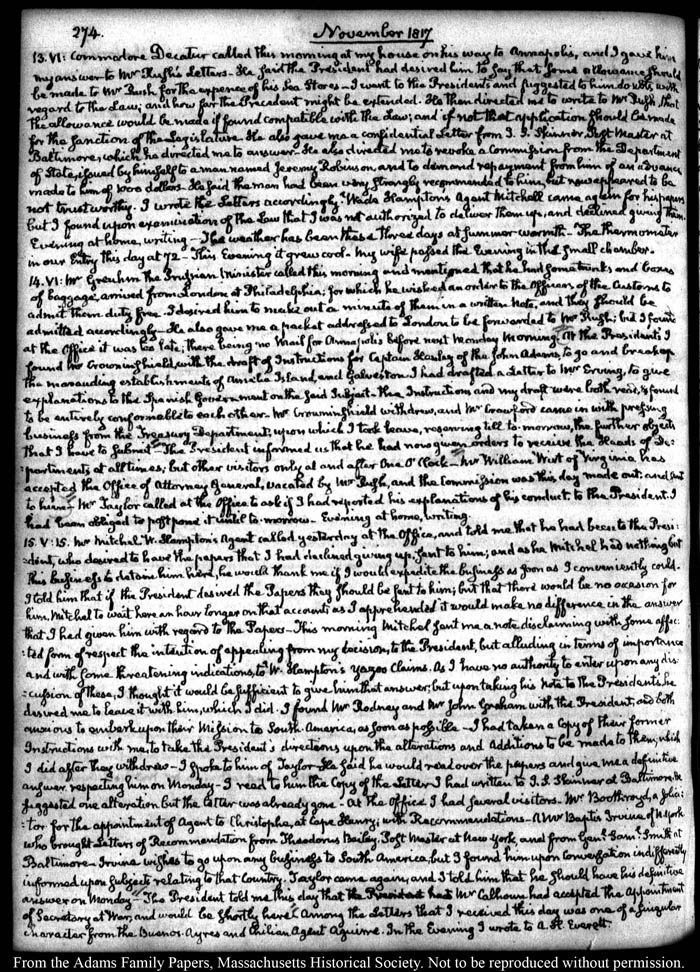 274.
November 1817
13. VI: Commodore Decatur called this morning at my house on his way to Annapolis, and I gave him
my answer to Mr Rush's Letters. He said the President had desired him to say that some allowance should
be made to Mr Rush for the expence of his Sea Stores. I went to the President's and suggested to him doubts with
regard to the Law, and how far the Precedent might be extended. He then directed me to write to Mr Rush, that
the allowance would be made if found compatible with the Law; and if not that application should be made
for the sanction of the Legislature. He also gave me a confidential Letter from J. S. Skinner, Post Master at
Baltimore, which he directed me to answer. He also directed me to revoke a Commission from the Department
of State, issued by himself to a man named Jeremy Robinson, and to demand repayment from him of an advance
made to him of 1000 dollars. He said the man had been very strongly recommended to him, but now appeared to be
not trust worthy. I wrote the Letters accordingly. Wade Hampton's Agent Mitchell came again for his papers
but I found upon examination of the Law that I was not authorized to deliver them up, and declined giving them.
Evening at home, writing — The weather has been these three days at summer warmth — The thermometer
in our Entry this day at 72 — This Evening it grew cool. My wife passed the Evening in the small chamber.
14. VI: Mr Greuhm the Prussian Minister called this morning and mentioned that he had some trunks and boxes
of baggage, arrived from London at Philadelphia; for which he wished an order to the Officers of the Customs to
admit them duty free. I desired him to make out a minute of them in a written Note, and they should be
admitted accordingly — He also gave me a packet addressed to London to be forwarded to Mr Rush; but I found
at the Office it was too late, there being no Mail for Annapolis before next Monday Morning. At the President's I
found Mr Crowninshield, with the draft of Instructions for Captain Henley of the John Adams, to go and break up
the marauding establishments of Amelia Island, and Galveston. I had drafted a Letter to Mr Erving, to give
explanations to the Spanish Government on the said Subject — The Instructions and my draft were both read, & found
to be entirely conformable to each other. Mr Crowninshield withdrew, and Mr Crawford came in with pressing
business from the Treasury Department; upon which I took leave, reserving till to-morrow, the further objects
that I have to submit — The President informed us that he had now given orders to receive the Heads of De-
:partments at all times; but other visitors only at and after One O'Clock — Mr William Wirt of Virginia has
accepted the Office of Attorney General, vacated by Mr Rush, and the Commission was this day made out and sent
to him — Mr Taylor called at the Office to ask if I had reported his explanations of his conduct to the President. I
had been obliged to postpone it until to-morrow — Evening at home, writing.
15. V:15. Mr Mitchel W. Hampton's Agent called yesterday at the Office, and told me that he had been to the Presi-
:dent, who desired to have the papers that I had declined giving up, sent to him; and as he Mitchel had nothing but
this business to detain him here, he would thank me if I would expedite the business as soon as I conveniently could.
I told him that if the President desired the Papers they should be sent to him; but that there would be no occasion for
him, Mitchel to wait here an hour longer on that account; as I apprehended it would make no difference in the answer
that I had given him with regard to the Papers — This morning Mitchel sent me a note, disclaiming with some affec-
:ted form of respect the intention of appealing from my decision, to the President, but alluding in terms of importance
and with some threatening indications, to W. Hampton's Yazoo Claims. As I have no authority to enter upon any dis-
:cussion of these, I thought it would be sufficient to give him that answer; but upon taking his Note to the President's, he
desired me to leave it with him; which I did. I found Mr Rodney and Mr John Graham with the President, and both
anxious to embark upon their Mission to South-America, as soon as possible — I had taken a Copy of their former
Instructions with me, to take the President's directions upon the alterations and Additions to be made to them; which
I did after they withdrew — I spoke to him of Taylor. He said he would read over the papers and give me a definitive
answer respecting him on Monday — I read to him the Copy of the Letter I had written to J. S. Skinner at Baltimore. He
suggested one alteration but the Letter was already gone. At the Office I had several visitors. Mr Boothroyd, a solici-
:tor for the appointment of Agent to Christophe, at Cape Henry; with Recommendations — A Mr Baptis Irvine of N. York
who brought Letters of Recommendation from Theodorus Bailey, Post Master at New York, and from Genl. Saml. Smith at
Baltimore — Irvine wishes to go upon any business to South America, but I found him upon conversation indifferently
informed upon subjects relating to that Country. Taylor came again, and I told him that he should have his definitive
answer on Monday — The President told me this day that the President had Mr Calhoun had accepted the Appointment
of Secretary at War, and would be shortly here. Among the Letters that I received this day was one of a singular
character from the Buenos-Ayres and Chilian Agent Aguirre. In the Evening I wrote to A. H. Everett.
From the Adams Family Papers, Massachusetts Historical Society. Not to be reproduced without permission.